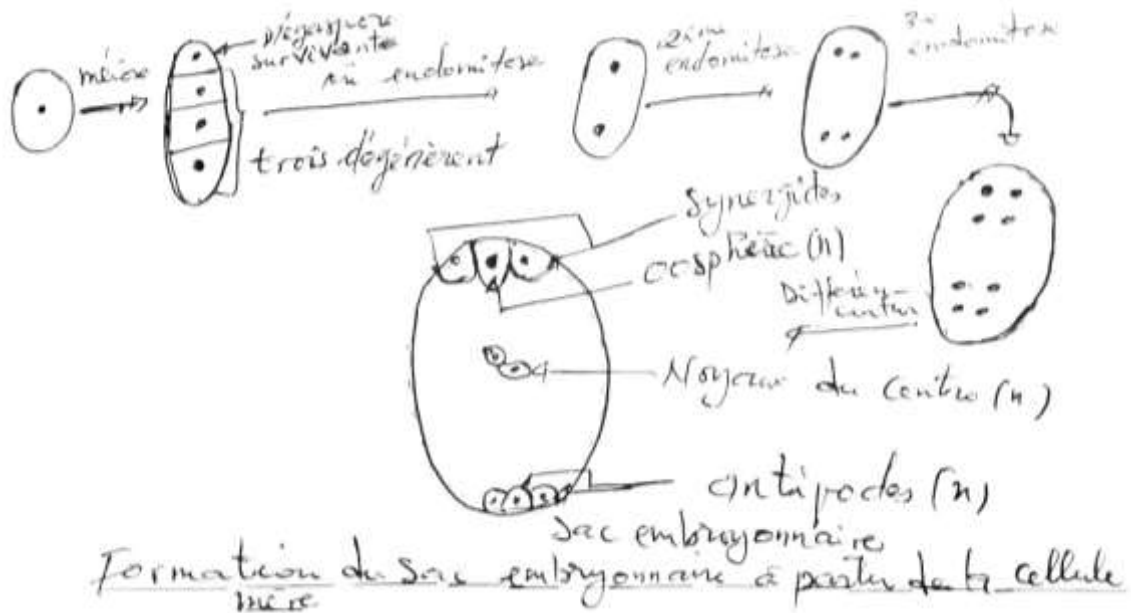 méiose
Mégaspore
survivante
endomitose
trois dégénèrent
2ème
endomitose
3e
endomitose
Synergides
oosphère (n)
Différen-
Noyaux du centre (n)
antipodes (n)
Sac embryonnaire
Formation du Sac embryonnaire à partir de la cellule
mère